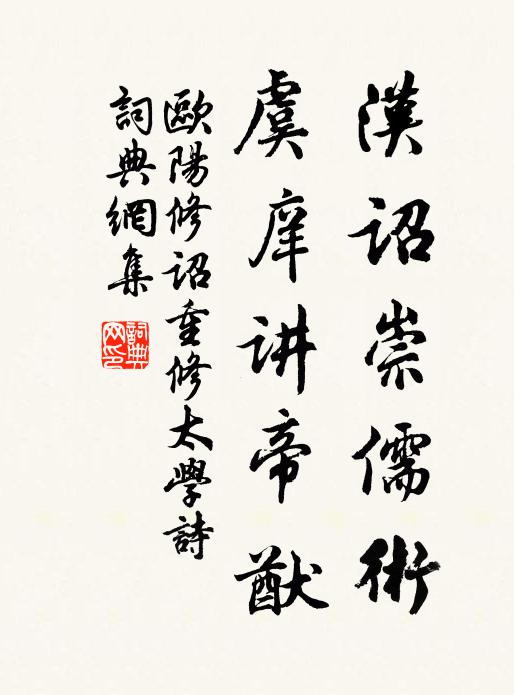 漢詔崇儒術
虞庠讲帝猷
歐陽修詔重修太學詩
詞典網集
詞典網印